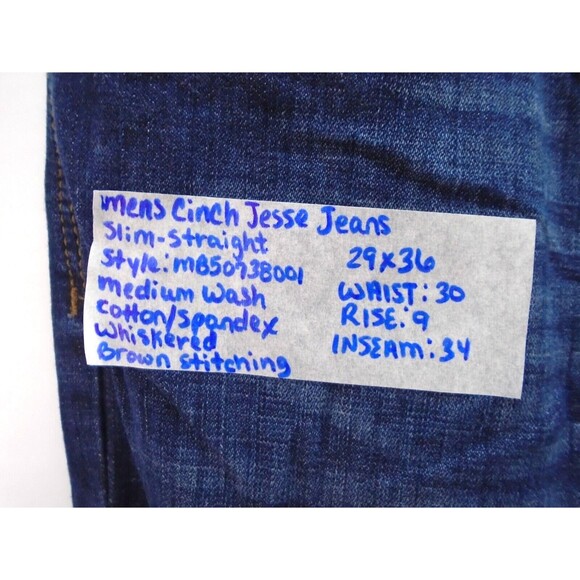 mens Cinch Jesse Jeans
Slim-straight
style: MB50738001
medium wash
cotton/spandex
whiskered
Brown stitching
29x36
WAIST: 30
RISE: 9
INSEAM: 34